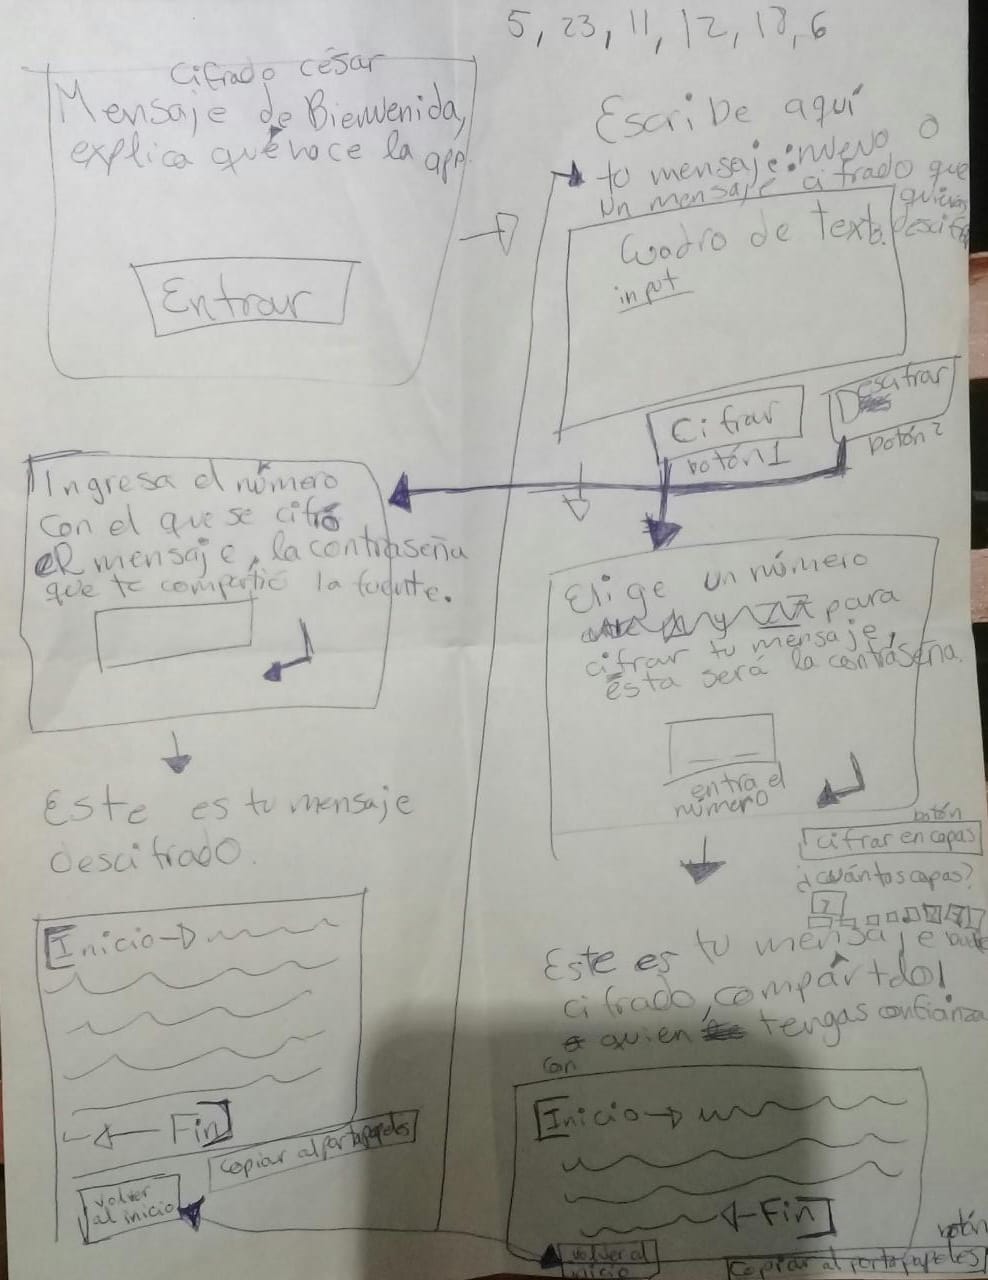 5, 23, 11, 12, 18, 6
Cifrado césar
Mensaje de Bienvenida,
explica qué hace la app.
Entrar
Escribe aquí
tu mensaje: nuevo o
un mensaje cifrado que
quieras
descifrar
Cuadro de texto.
input
Cifrar
botón 1
Descifrar
botón 2
Ingresa el número
con el que se cifró
el mensaje, la contraseña
que te compartió la fuente.
Este es tu mensaje
descifrado.
Inicio
Fin
Copiar al portapapeles
volver
al inicio
Elige un número
para
cifrar tu mensaje,
ésta será la contraseña.
entra el
número
botón
cifrar en capas
¿cuántas capas?
Este es tu mensaje
cifrado, compártelo!
con
quien tengas confianza
Inicio
Fin
volver al
inicio
botón
Copiar al portapapeles